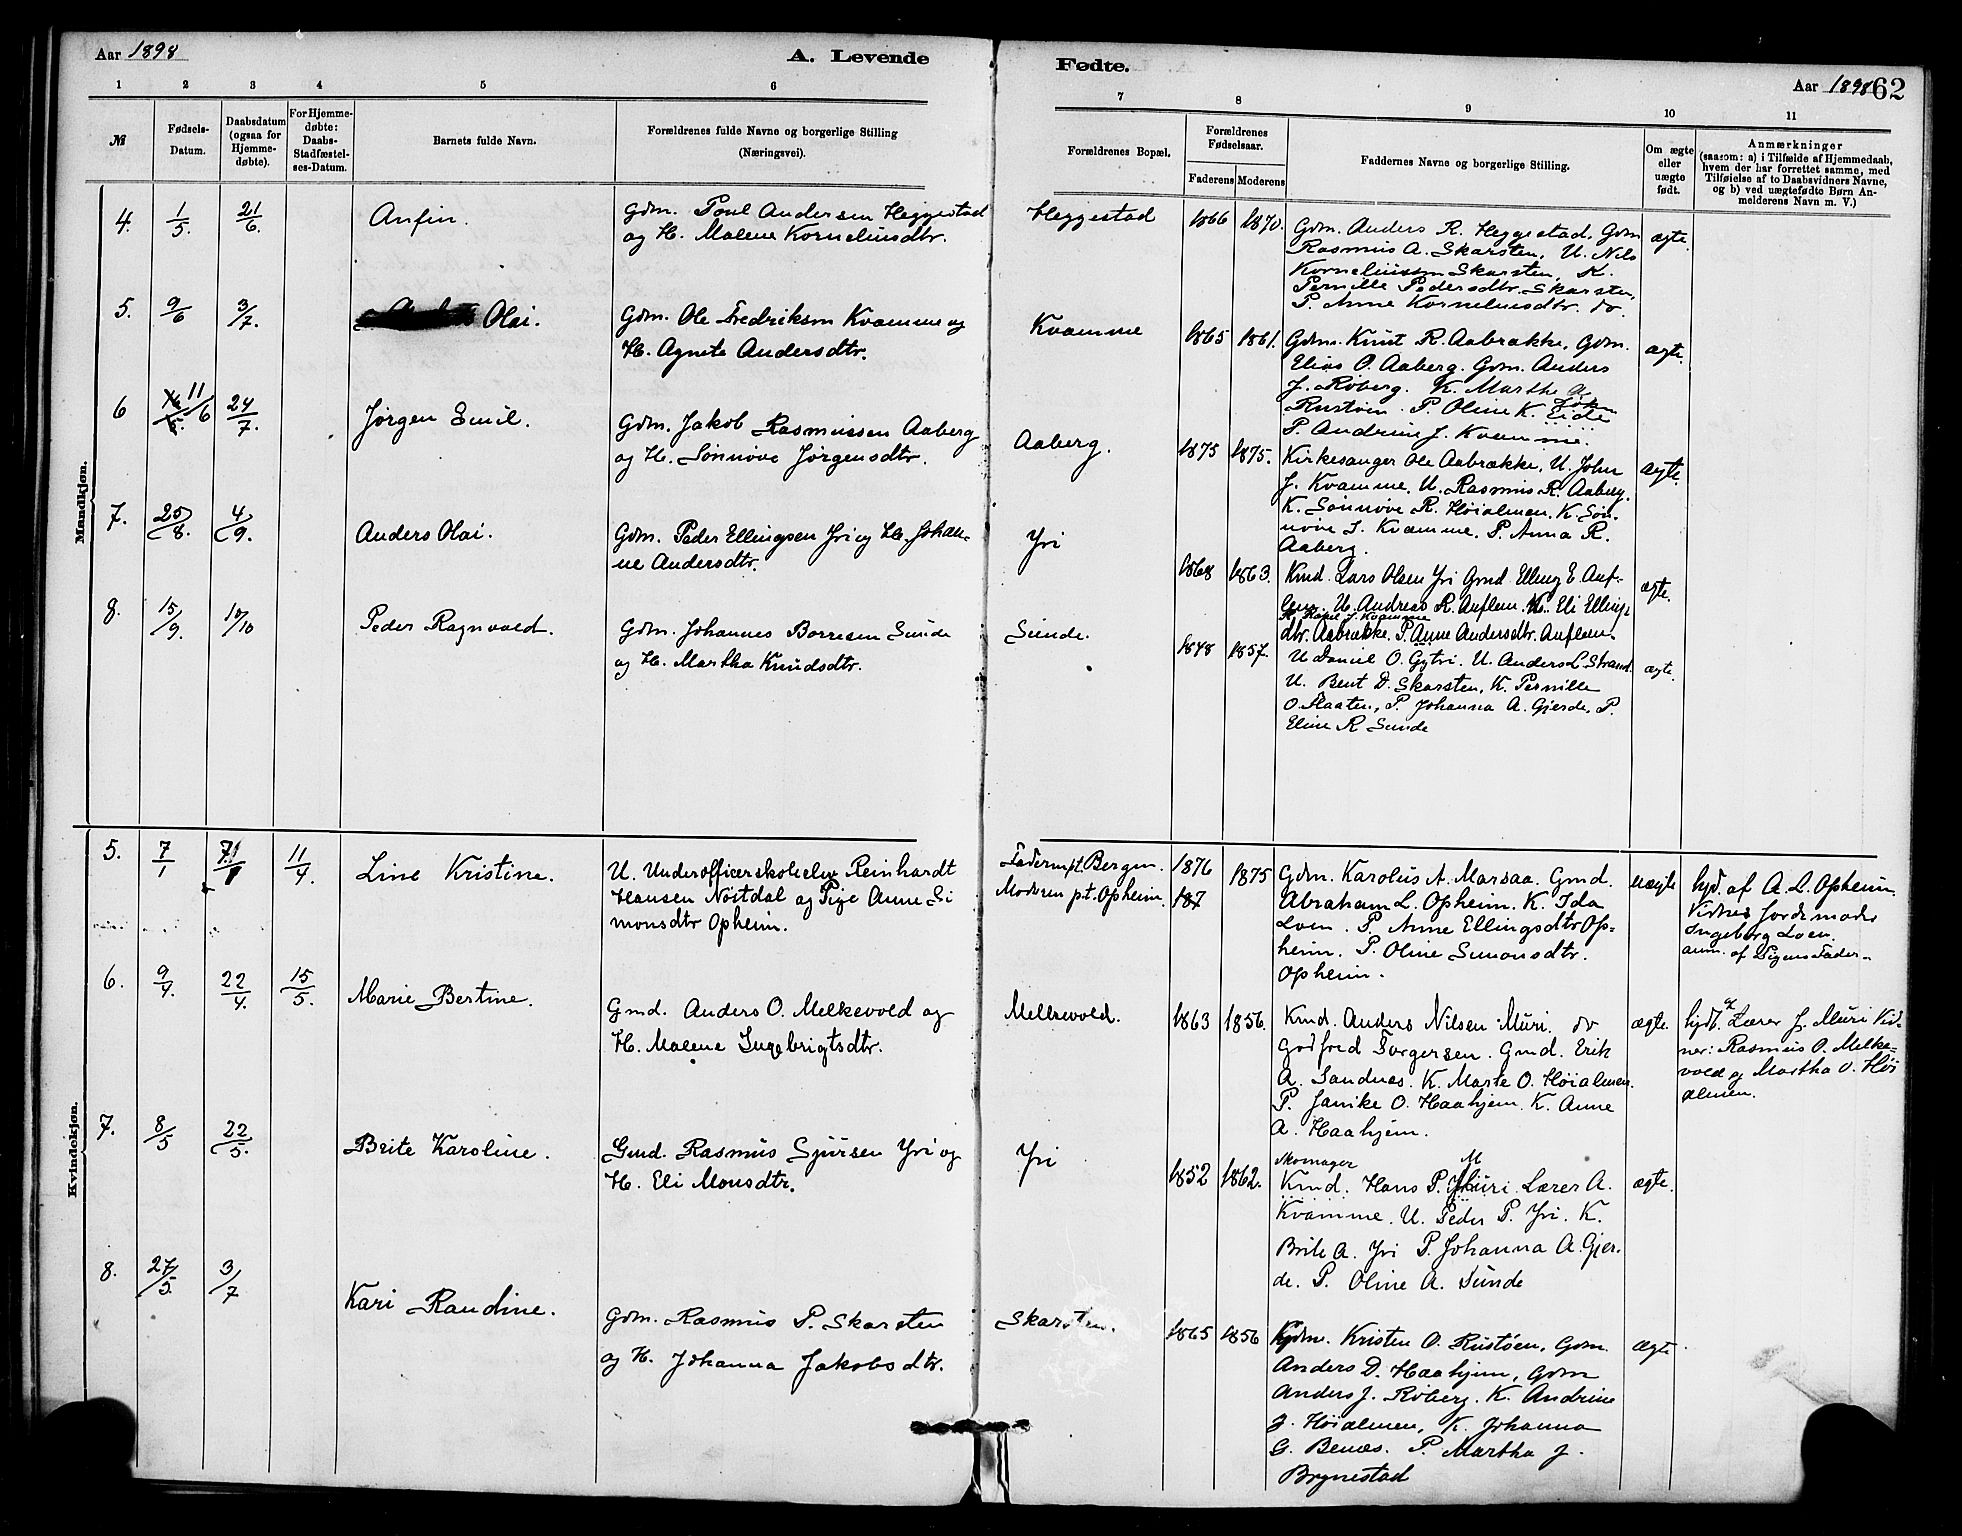 Aar 1898
A. Levende
Fødte.
Aar 1898
62
1 2 3 4 5 6
7 8 9 10 11
№
Fødsels-
Datum.
Daabsdatum
(ogsaa for
Hjemme-
døbte).
For Hjemme-
døbte:
Daabs-
Stadfæstel-
ses-Datum.
Barnets fulde Navn.
Forældrenes fulde Navne og borgerlige Stilling
(Næringsvei).
Forældrenes Bopæl.
Forældrenes
Fødselsaar.
Faderens Moderens
Faddernes Navne og borgerlige Stilling.
Om ægte
eller
uægte
født.
Anmærkninger
(saasom: a) i Tilfælde af Hjemmedaab,
hvem der har forrettet samme, med
Tilføielse af to Daabsvidners Navne,
og b) ved uægtefødte Børn An-
melderens Navn m. V.)
Mandkjøn.
4. 1/5. 21/6. Anfin.
Gdm. Poul Andersen Heggestad
og H. Malene Korneliusdtr.
Heggestad 1866 1870.
Gdm. Anders R. Heggestad, Gdm
Rasmus A. Skarsten, U. Nils
Korneliussen Skarsten, K.
Pernille Pedersdtr. Skarsten,
P. Anne Korneliusdtr. do.
ægte.
5. 9/6 3/7. Olai.
Gdm. Ole Fredriksen Kvamme og
H. Agnete Andersdtr.
Kvamme 1865 1861.
Gdm. Knut R. Aabrække, Gdm.
Elias O. Aaberg. Gdm. Anders
J. Røberg. K. Marthe
Rustøen. P. Oline K. Eide
P. Andrine J. Kvamme.
ægte.
6 11/6 24/7. Jørgen Emil.
Gdm. Jakob Rasmussen Aaberg
og H. Sønnøve Jørgensdtr.
Aaberg. 1875 1875.
Kirkesanger Ole Aabrække, U. John
J. Kvamme, U. Rasmus R. Aaberg.
K. Sønnøve R. Høialmen, K. Søn-
nøve J. Kvamme. P. Anna R.
Aaberg.
ægte.
7. 25/8. 4/9. Anders Olai.
Gdm. Peder Ellingsen Yri og H. Johan-
ne Andersdtr.
Yri 1868 1863.
Kmd. Lars Olsen Yri Gmd. Elling E. Auf-
lem. U. Andreas R. Auflem. K. Eli Ellings
K. Kari J. Kvamme
dtr. Aabrække. P. Anne Andersdtr. Auflem.
ægte.
8. 15/9. 10/10 Peder Ragnvald.
Gdm. Johannes Borresen Sunde
og H. Martha Knudsdtr.
Sunde. 1848 1857.
U Daniel O. Gytri. U. Anders L. Strand.
U. Bent D. Skarsten, K. Pernille
O. Flaaten, P. Johanna A. Gjerde, P.
Eline R Sunde
ægte.
Kvindekjøn.
5. 7/1 11/4. Line Kristine.
U. Underofficerskoleelev Reinhardt
Hansen Nøstdal og Pige Anne Si
monsdtr Opheim.
Faderen pt. Bergen. 1876 1875
Moderen pt. Opheim. 187
Gdm. Karolus A. Marsaa. Gmd.
Abraham L. Opheim. K. Ida
Loen. P. Anne Ellingsdtr Op-
heim. P. Oline Simonsdtr.
Opheim.
uægte
hjd. af A. L. Opheim
Vidnes Jordemoder
Ingeborg Loen.
anm. af Pigens Fader.
6. 9/4. 22/4. 15/5. Marie Bertine.
Gmd. Anders O. Melkevold og
H. Malene Ingebrigtsdtr.
Melkevold. 1863 1856.
Kmd. Anders Nilsen Muri. do
Godfred Torgersen. Gmd. Erik
A. Sandnes. K. Marte O. Høialmen.
P. Janike O. Haahjem. K. Anne
A. Haahjem.
ægte.
hjdt. af Lærer J. Muri Vid-
ner: Rasmus O. Melke-
vold og Martha O. Høi
almen.
7. 8/5 22/5. Brite Karoline.
Gmd. Rasmus Sjursen Yri og
H. Eli Monsdtr.
Yri 1852 1862.
Skomager M
Kmd. Hans P. Muri. Lærer A.
Kvamme. U. Peder P. Yri. K.
Brite A. Yri P. Johanna A. Gjer-
de. P. Oline A. Sunde
ægte.
8. 27/5. 3/7 Kari Raudine.
Gdm. Rasmus P. Skarsten
og H. Johanna Jakobsdtr.
Skarsten. 1865 1856
Gdm. Kristen O. Rustøen, Gdm.
Anders D. Haahjem, Gdm
Anders J. Røberg. K. Andrine
J. Høialmen, K. Johanna
G. Benæs. P. Martha J.
Brynestad
ægte